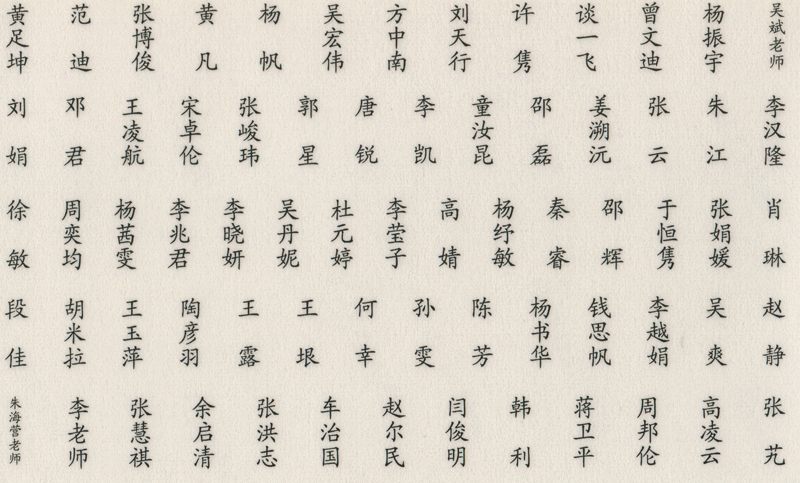 黄足坤 范迪 张博俊 黄凡 杨帆 吴宏伟 方中南 刘天行 许隽 谈一飞 曾文迪 杨振宇 吴斌老师
刘娟 邓君 王凌航 宋卓伦 张峻玮 郭星 唐锐 李凯 童汝昆 邵磊 姜溯沅 张云 朱江 李汉隆
徐敏 周奕均 杨茜雯 李兆君 李晓妍 吴丹妮 杜元婷 李莹子 高婧 杨纾敏 秦睿 邵辉 于恒隽 张娟媛 肖琳
段佳 胡米拉 王玉萍 陶彦羽 王露 王垠 何幸 孙雯 陈芳 杨书华 钱思帆 李越娟 吴爽 赵静
朱海营老师 李老师 张慧祺 余启清 张洪志 车治国 赵尔民 闫俊明 韩利 蒋卫平 周邦伦 高凌云 张艽